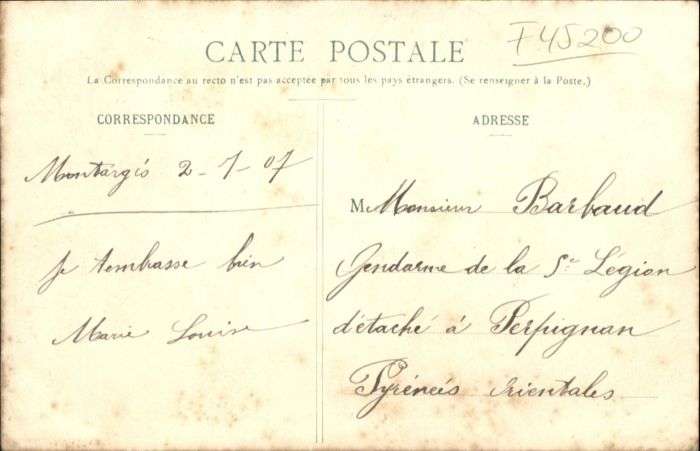 F45200
CARTE POSTALE
La Correspondance au recto n'est pas acceptée par tous les pays étrangers. (Se renseigner à la Poste.)
CORRESPONDANCE
Montargis 2-7-07
je tembrasse bien
Marie Louise
ADRESSE
M Monsieur Barbaud
Gendarme de la 5e Légion
détaché à Perpignan
Pyrénées Orientales